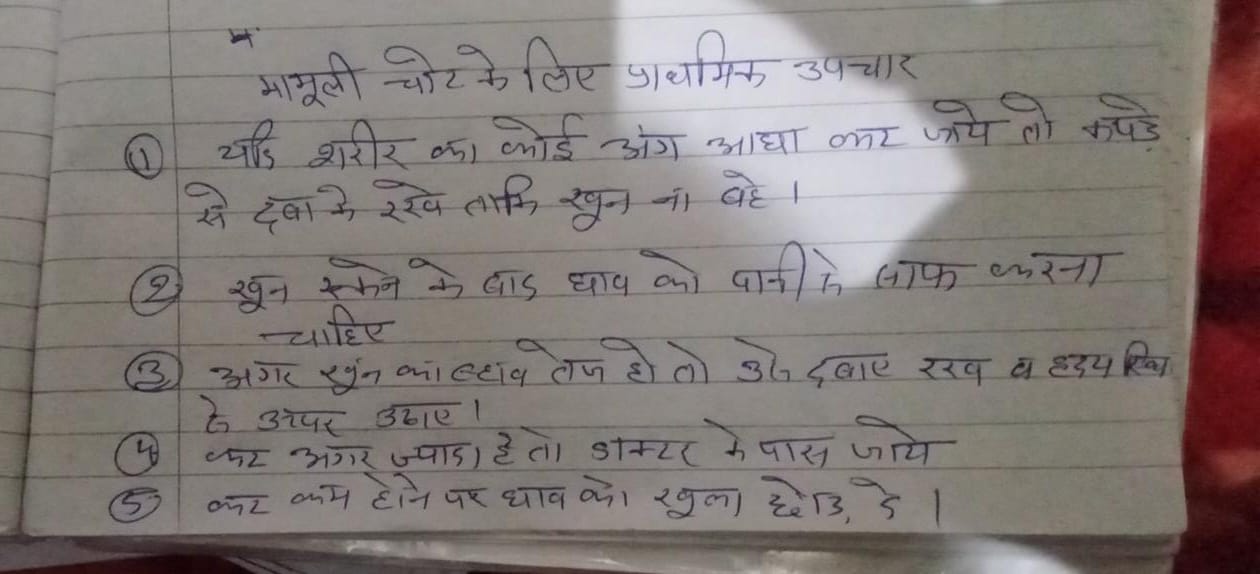 मामूली चोट के लिए प्राथमिक उपचार
① यदि शरीर का कोई अंग आधा कट जाये तो कपड़े
से दबा के रखे ताकि खून ना बहे ।
② खून रूकने के बाद घाव को पानी से साफ करना
चाहिए
③ अगर खून का बहाव तेज हो तो उसे दबाए रखे व हृदय
से ऊपर उठाए ।
④ कट अगर ज्यादा है तो डाक्टर के पास जाये
⑤ कट कम होने पर घाव को खुला दे ।